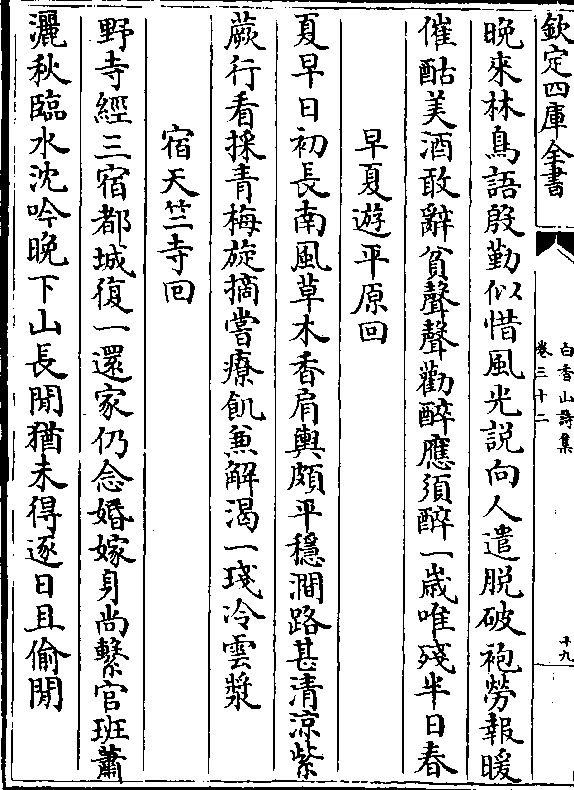 欽定四庫全書
白香山詩集
卷三十二
十九
晚來林鳥語殷勤似惜風光説向人遣脱破袍勞報暖
催酤美酒敢辭貧聲聲勸醉應須醉一歲唯殘半日春
早夏遊平原回
夏早日初長南風草木香肩輿頗平穩澗路甚清涼紫
蕨行看採青梅旋摘嘗療飢兼解渴一琖冷雲漿
宿天竺寺回
野寺經三宿都城復一還家仍念婚嫁身尚繫官班蕭
灑秋臨水沈吟晚下山長閒猶未得逐日且偷閒